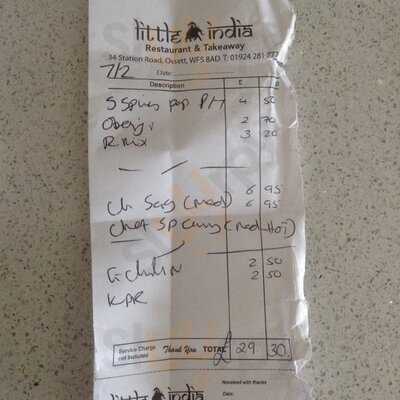 little india
Restaurant & Takeaway
34 Station Road, Ossett, WF5 8AD T: 01924 281 777
7/2 Date:
Description £ p
4 50
2 70
R. mix 3 20
Ch Sag (med) 6 95
Chef Sp Curry (med-Hot) 6 95
G. chilli N 2 50
KPR 2 50
Service Charge not included Thank You TOTAL £ 29 30
little india
Received with thanks
Date: